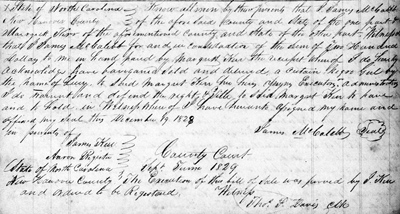 State of North Carolina } Know all men by these presents that I James McCalebb
New Hanover County } of the aforesaid County and State of the one part &
Margaret Kerr of the aforementioned County and State of the other part. Witnesseth
that I James McCalebb for and in consideration of the sum of two Hundred
Dollars to me in hand paid by Margaret Kerr the receipt whereof I do hereby
acknowledge have bargained sold and delivered a certain Negro Girl by
the name of Lucy to said Margaret Kerr
I do warrant and defend the right & title to said Margaret Kerr to have
and to hold. In Witness whereof I have hereunto signed my name and
affixed my seal this December 19 1828
in presents of James McCalebb (Seal)
James Kerr
Aaron Register
County Court
State of North Carolina } Sept. Term 1829
New Hanover County } The Execution of this bill of Sale was proved by J Kerr
and ordered to be Registered Witness
Tho. F. Davis Clk